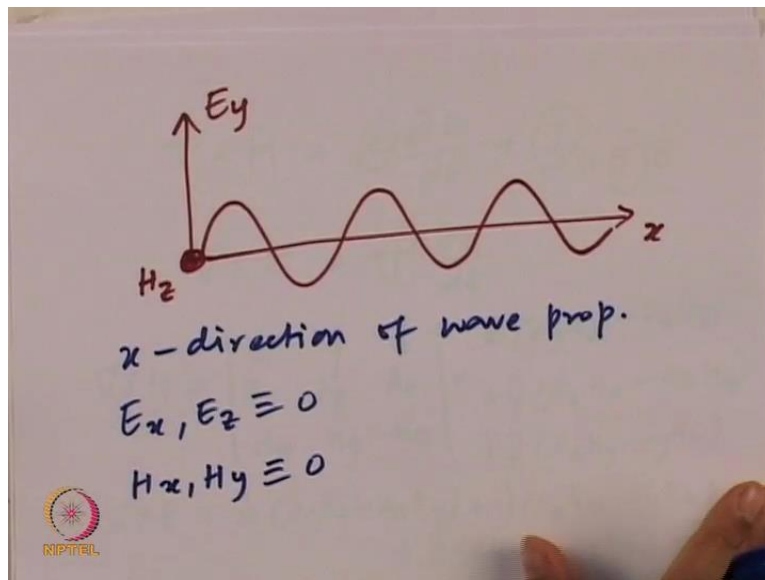 Ey
x
Hz
x - direction of wave prop.
Ex, Ez ≡ 0
Hx, Hy ≡ 0
NPTEL